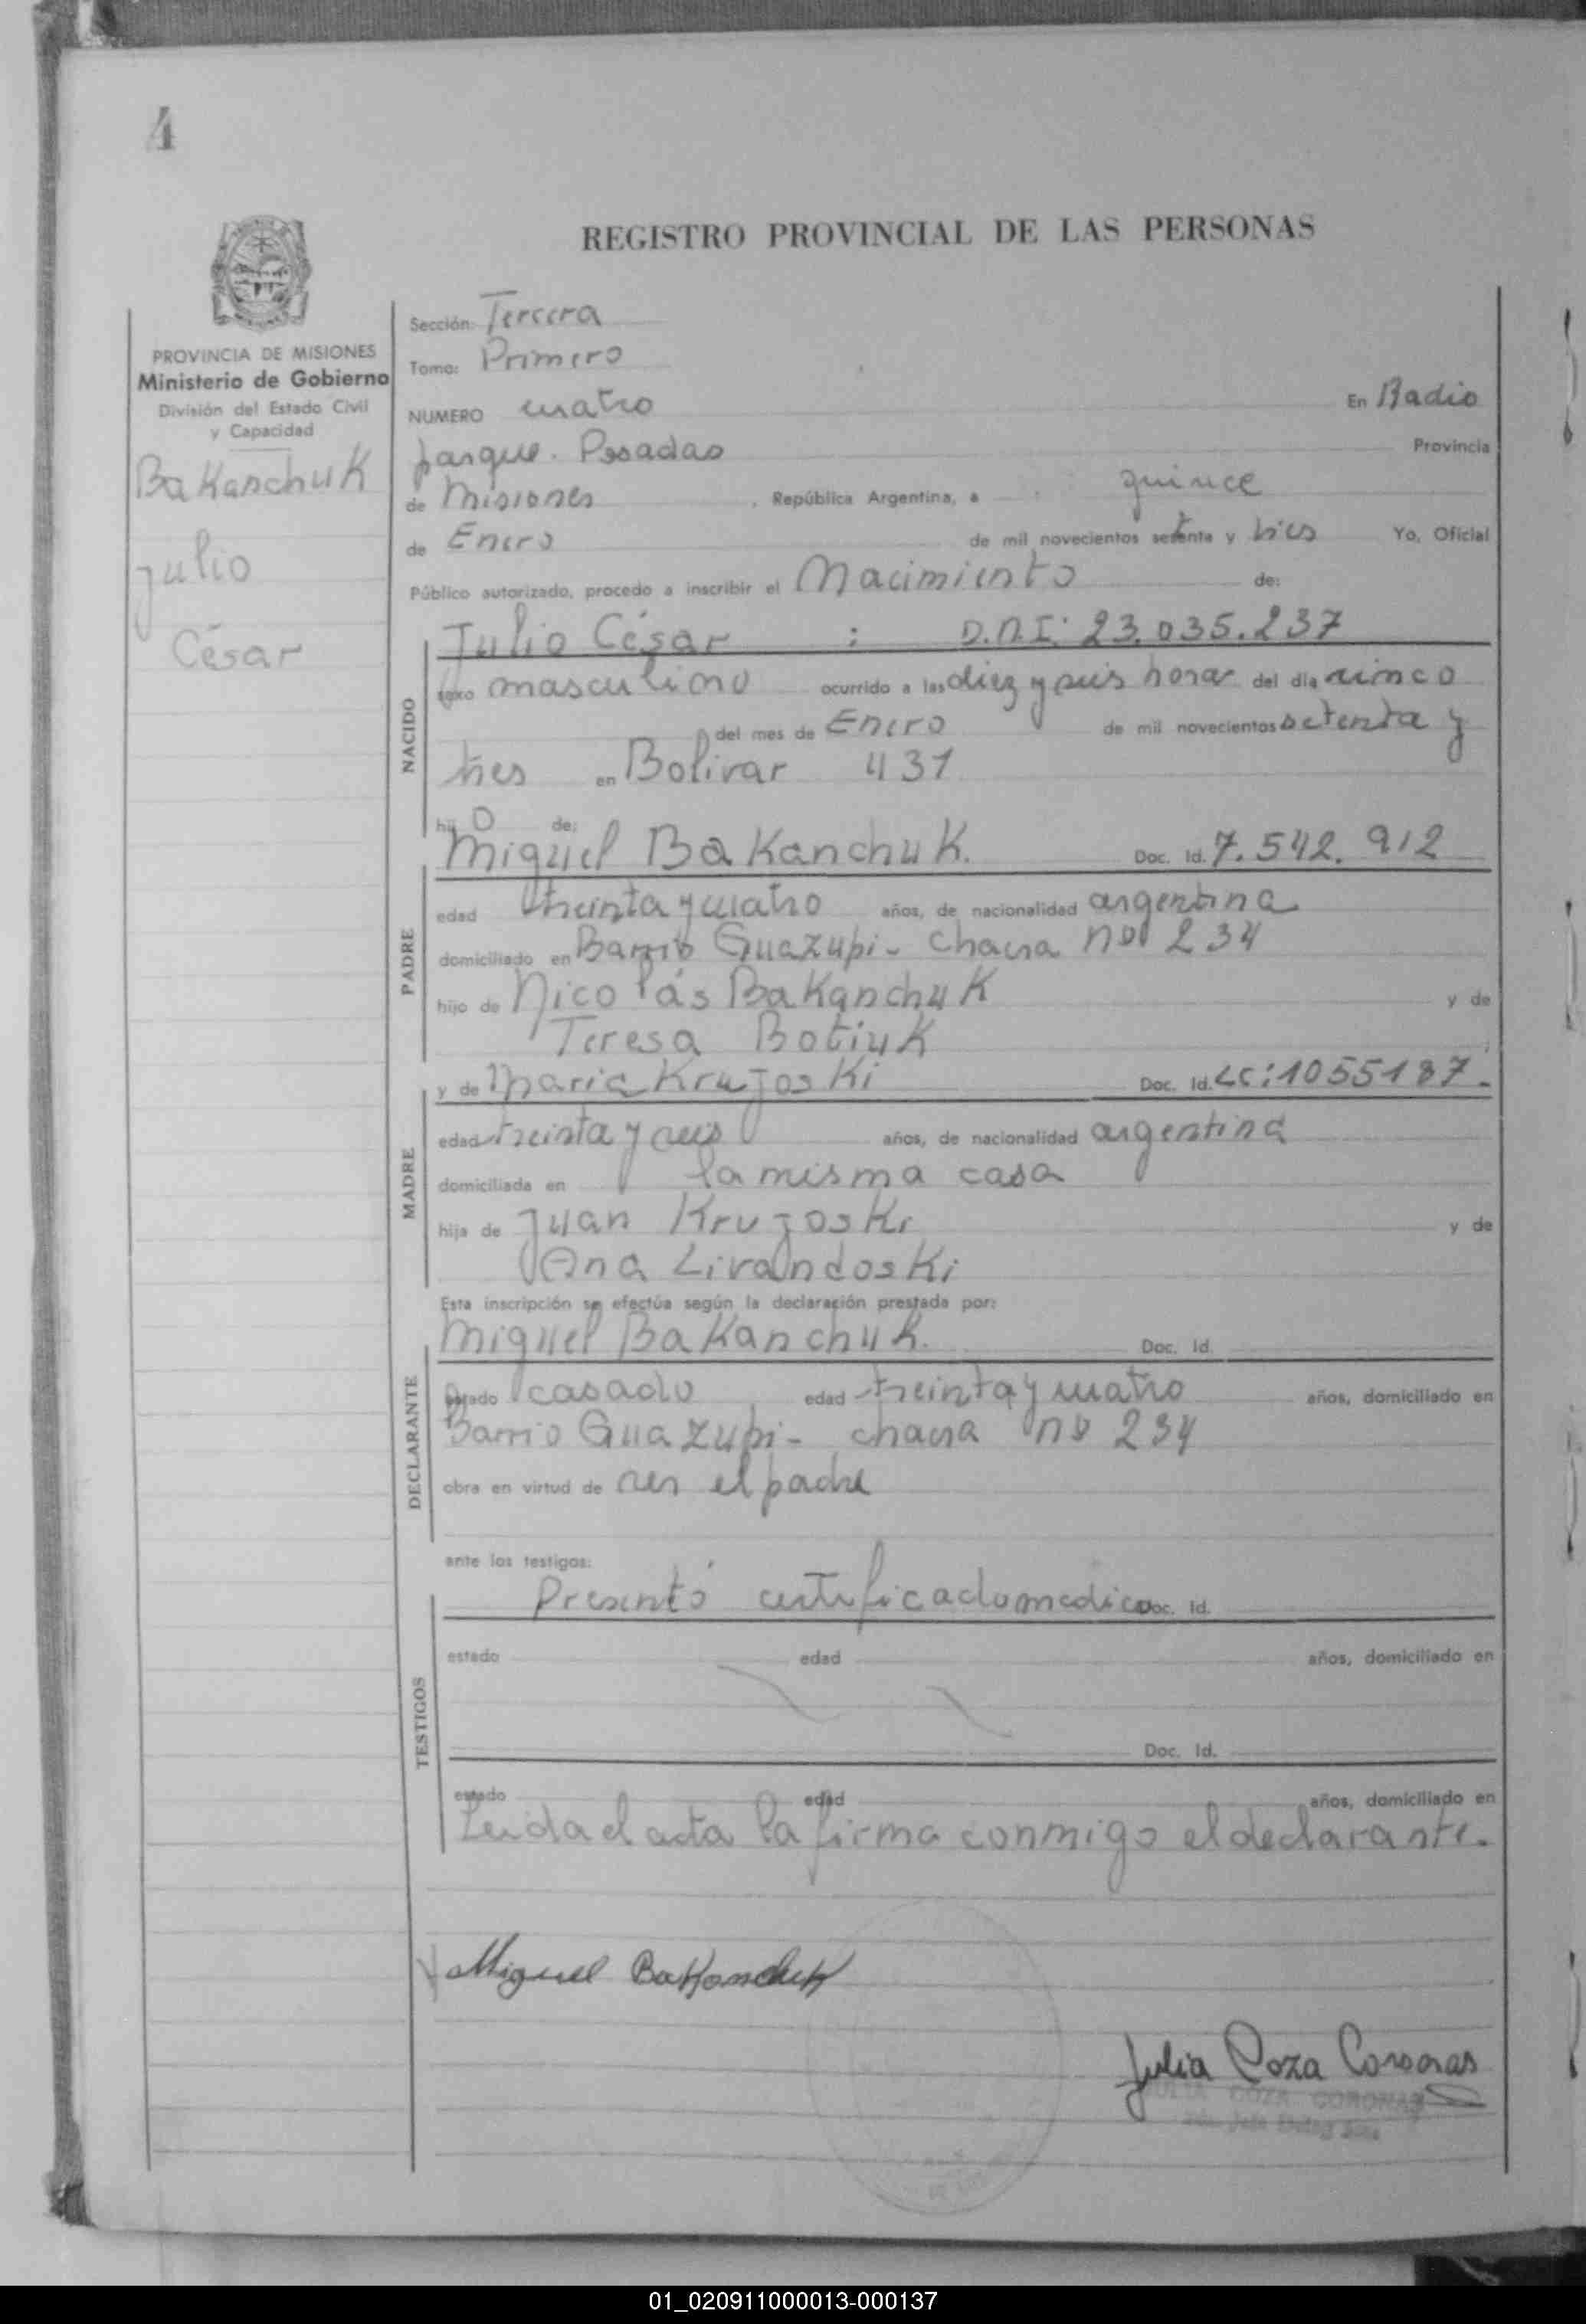 4
REGISTRO PROVINCIAL DE LAS PERSONAS
PROVINCIA DE MISIONES
Ministerio de Gobierno
División del Estado Civil
y Capacidad
BaKanchuK
Julio
César
Sección: Tercera
Tomo: Primero
NUMERO cuatro En Radio
parque. Posadas Provincia
de Misiones, República Argentina, a quince
de Enero de mil novecientos setenta y tres Yo, Oficial
Público autorizado, procedo a inscribir el Nacimiento de:
NACIDO
Julio César : D.N.I: 23.035.237
sexo masculino ocurrido a las diez y seis horas del día cinco
del mes de Enero de mil novecientos setenta y
tres en Bolivar 431
hijo de:
PADRE
Miguel BaKanchuK. Doc. Id. 7.542.912
edad treinta y cuatro años, de nacionalidad argentina
domiciliado en Barrio Guazupi - chacra no 234
hijo de Nicolás BaKanchuK y de
Teresa BotiuK
MADRE
y de Maria KrujosKi Doc. Id. LC:1055187.
edad treinta y seis años, de nacionalidad argentina
domiciliada en la misma casa
hija de Juan KrujosKi y de
Ana LivandosKi
Esta inscripción se efectúa según la declaración prestada por:
DECLARANTE
Miguel BaKanchuK. Doc. Id.
estado casado edad treinta y cuatro años, domiciliado en
Barrio Guazupi - chacra no 234
obra en virtud de ser el padre
ante los testigos:
TESTIGOS
Presentó certificado medico Doc. Id.
estado edad años, domiciliado en
Doc. Id.
estado edad años, domiciliado en
Leida el acta la firma conmigo el declarante.
Miguel BaKanchuk
Julia Coza Coronas
JULIA COZA CORONAS
01_020911000013-000137